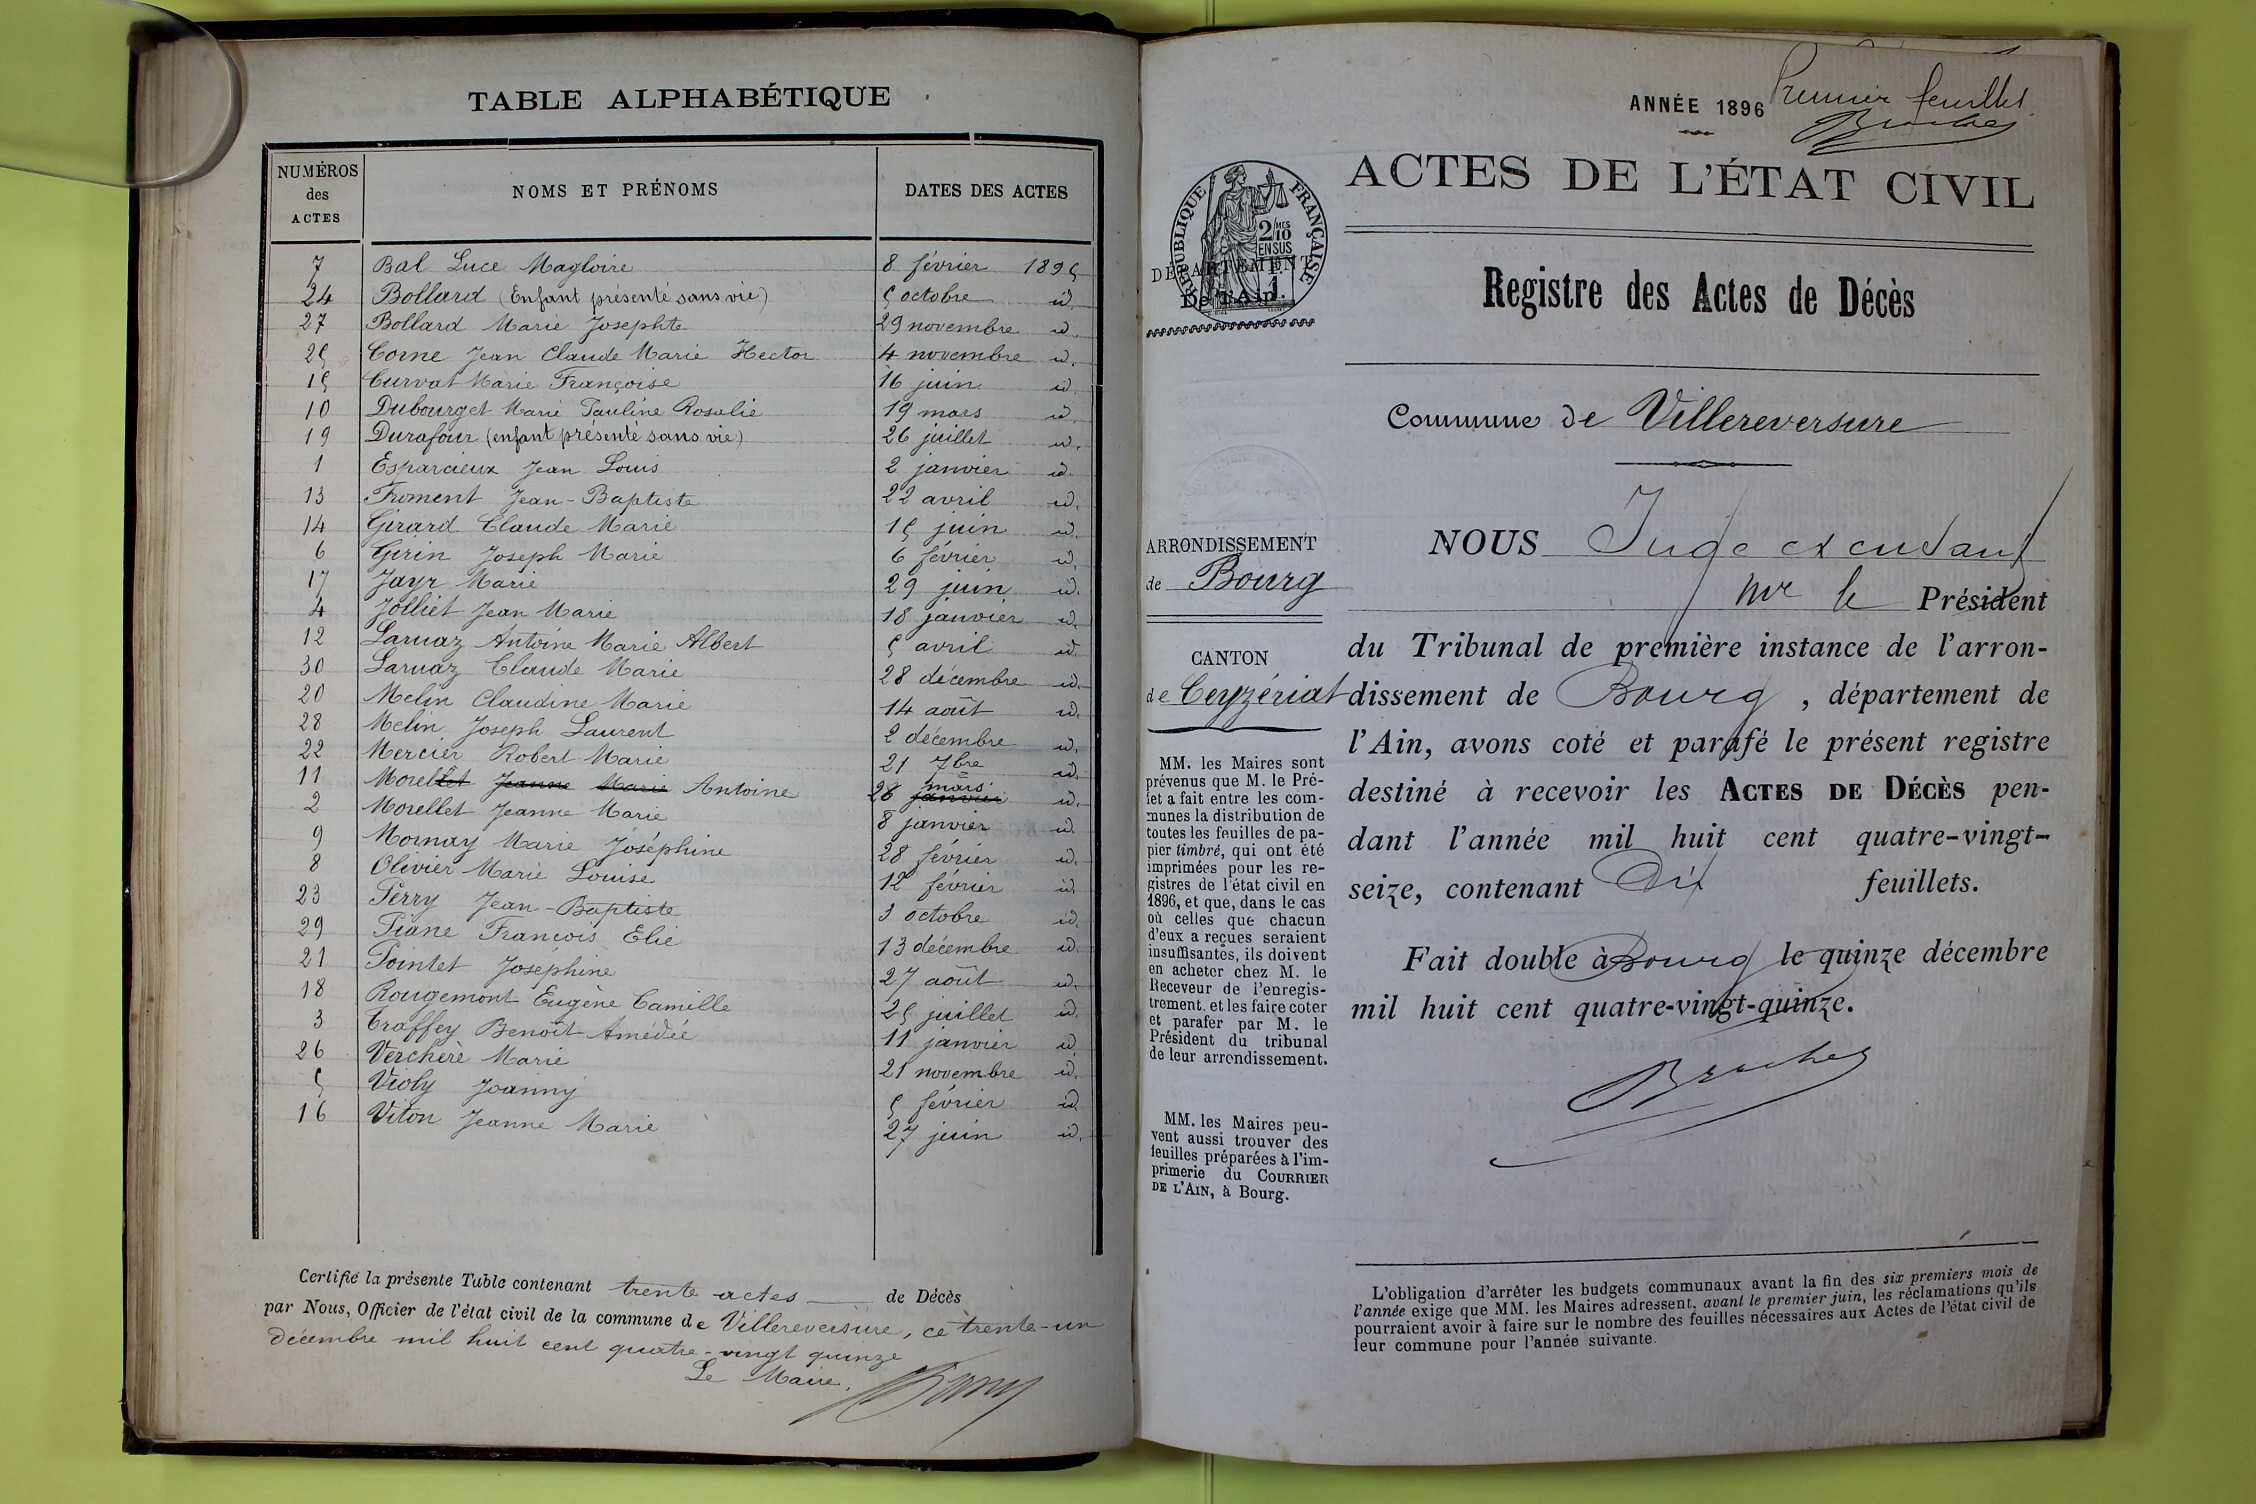 TABLE ALPHABÉTIQUE
NUMÉROS des ACTES NOMS ET PRÉNOMS DATES DES ACTES
7 Bal Luce Magloire 8 février 1895
24 Bollard (Enfant présenté sans vie) 5 octobre id.
27 Bollard Marie Josephte 29 novembre id.
25 Corne Jean Claude Marie Hector 4 novembre id.
15 Curvat Marie Françoise 16 juin id.
10 Dubourget Marie Pauline Rosalie 19 mars id.
19 Durafour (enfant présenté sans vie) 26 juillet id.
1 Esparcieux Jean Louis 2 janvier id.
13 Froment Jean-Baptiste 22 avril id.
14 Girard Claude Marie 15 juin id.
6 Girin Joseph Marie 6 février id.
17 Jayr Marie 29 juin id.
4 Jolliet Jean Marie 18 janvier id.
12 Laruaz Antoine Marie Albert 5 avril id.
30 Laruaz Claude Marie 28 décembre id.
20 Melin Claudine Marie 14 août id.
28 Melin Joseph Laurent 2 décembre id.
22 Mercier Robert Marie 21 7bre id.
11 Morellet Jeanne Marie Antoine 28 janvier mars id.
2 Morellet Jeanne Marie 8 janvier id.
9 Mornay Marie Joséphine 28 février id.
8 Olivier Marie Louise 12 février id.
23 Perry Jean-Baptiste 3 octobre id.
29 Piane François Elie 13 décembre id.
21 Pointet Josephine 27 août id.
18 Rougemont Eugène Camille 25 juillet id.
3 Traffey Benoit Amédée 11 janvier id.
26 Verchère Marie 21 novembre id.
5 Violy Joanny 5 février id.
16 Viton Jeanne Marie 27 juin id.
Certifié la présente Table contenant trente actes de Décès
par Nous, Officier de l'état civil de la commune de Villereversure, ce trente-un
décembre mil huit cent quatre-vingt quinze
Le Maire,
ANNÉE 1896
Premier feuillet
ACTES DE L'ÉTAT CIVIL
RÉPUBLIQUE FRANÇAISE
2/10 MES
EN SUS
1 F.
DÉPARTEMENT
De l'Ain
Registre des Actes de Décès
Commune de Villereversure
ARRONDISSEMENT
de Bourg
CANTON
de Ceyzériat
MM. les Maires sont
prévenus que M. le Pré-
fet a fait entre les com-
munes la distribution de
toutes les feuilles de pa-
pier timbré, qui ont été
imprimées pour les re-
gistres de l'état civil en
1896, et que, dans le cas
où celles que chacun
d'eux a reçues seraient
insuffisantes, ils doivent
en acheter chez M. le
Receveur de l'enregis-
trement, et les faire coter
et parafer par M. le
Président du tribunal
de leur arrondissement.
MM. les Maires peu-
vent aussi trouver des
feuilles préparées à l'im-
primerie du COURRIER
DE L'AIN, à Bourg.
NOUS Juge excusant
Mr le Président
du Tribunal de première instance de l'arron-
dissement de Bourg, département de
l'Ain, avons coté et parafé le présent registre
destiné à recevoir les ACTES DE DÉCÈS pen-
dant l'année mil huit cent quatre-vingt-
seize, contenant Dix feuillets.
Fait double à Bourg le quinze décembre
mil huit cent quatre-vingt-quinze.
L'obligation d'arrêter les budgets communaux avant la fin des six premiers mois de
l'année exige que MM. les Maires adressent, avant le premier juin, les réclamations qu'ils
pourraient avoir à faire sur le nombre des feuilles nécessaires aux Actes de l'état civil de
leur commune pour l'année suivante.